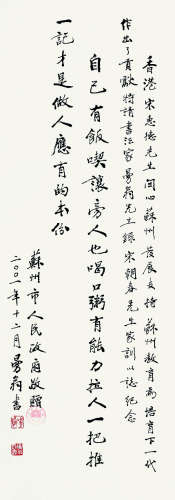 香港宋惠德先生関心蘇州發展支持蘇州教育為培育下一代
作出了貢獻特請書法家曼翁先生録宋朝春先生家訓以誌紀念
自己有飯喫讓旁人也喝口粥有能力拉人一把推
一記才是做人應有的本份
蘇州市人民政府敬贈
二〇〇一年十二月曼翁書